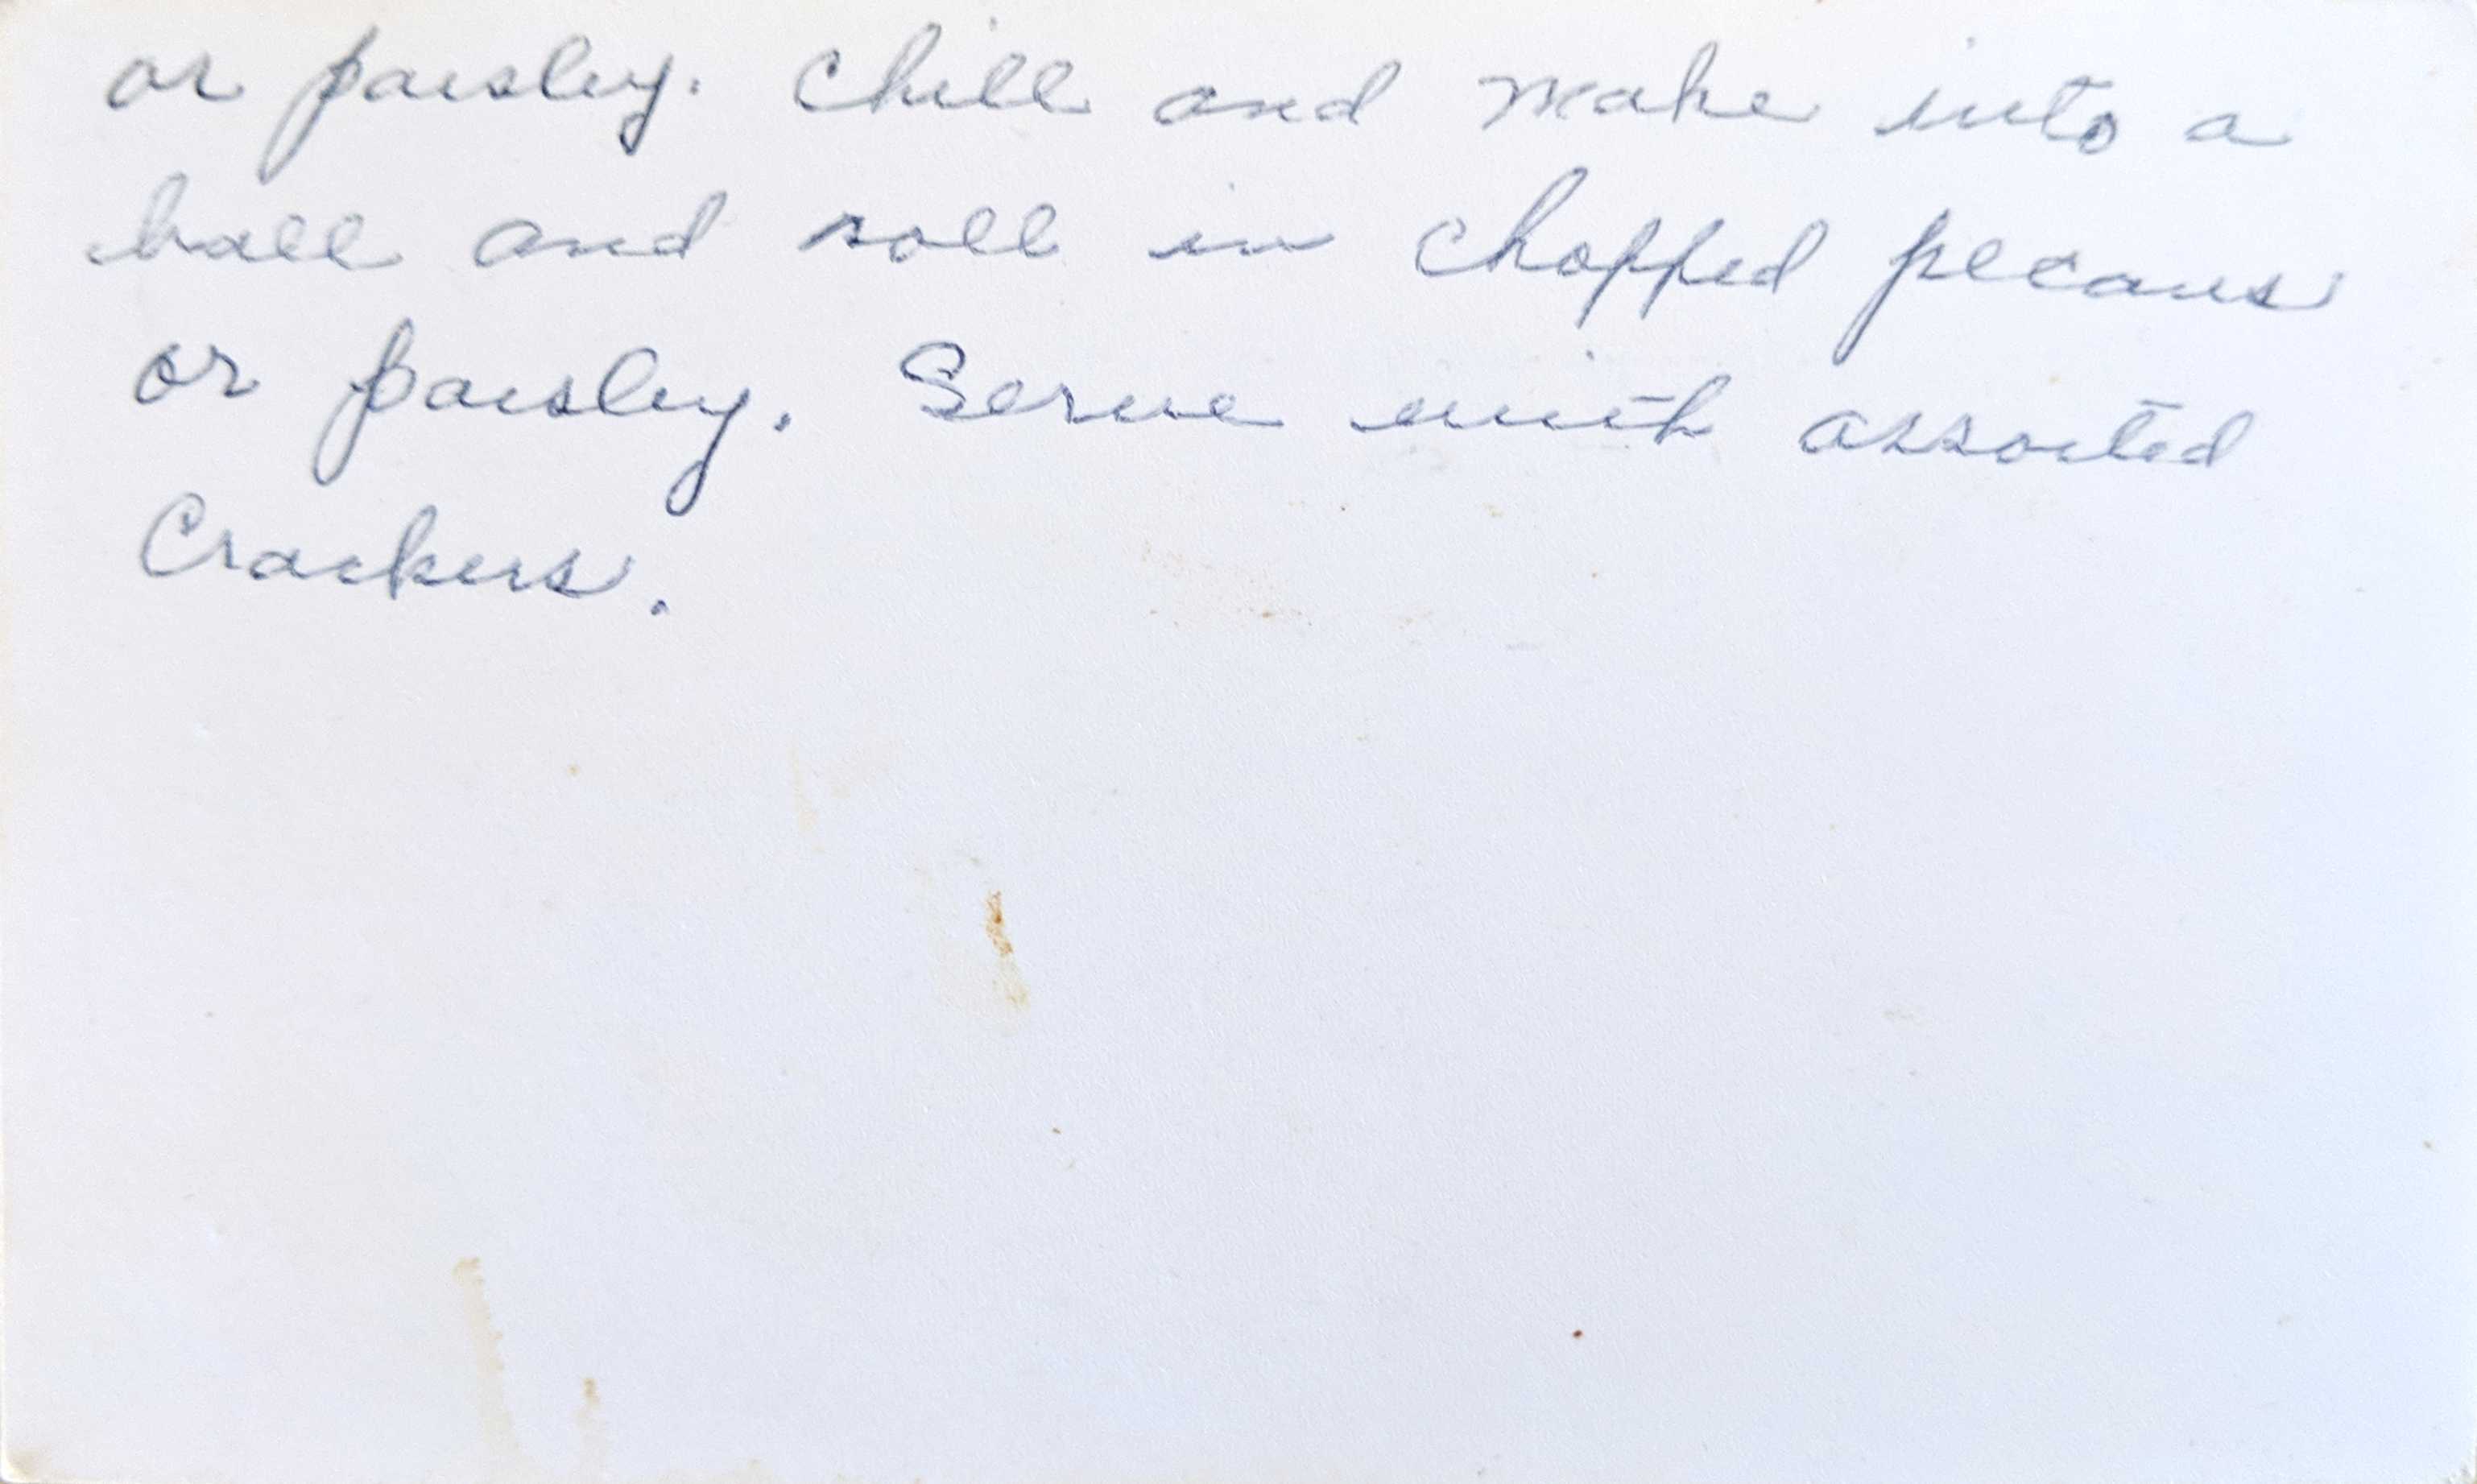 or parsley. Chill and make into a
ball and roll in chopped pecans
or parsley. Serve with assorted
Crackers.